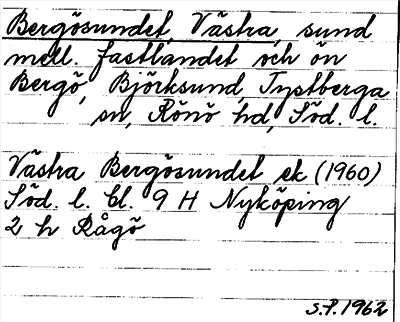 Bergösundet, Västra, sund
mell. fastlandet och ön
Bergö, Björksund, Tystberga
sn, Rönö hd, Söd. l.
Västra Bergösundet ek (1960)
Söd. l. bl. 9 H Nyköping
2 h Rågö
S.P. 1962